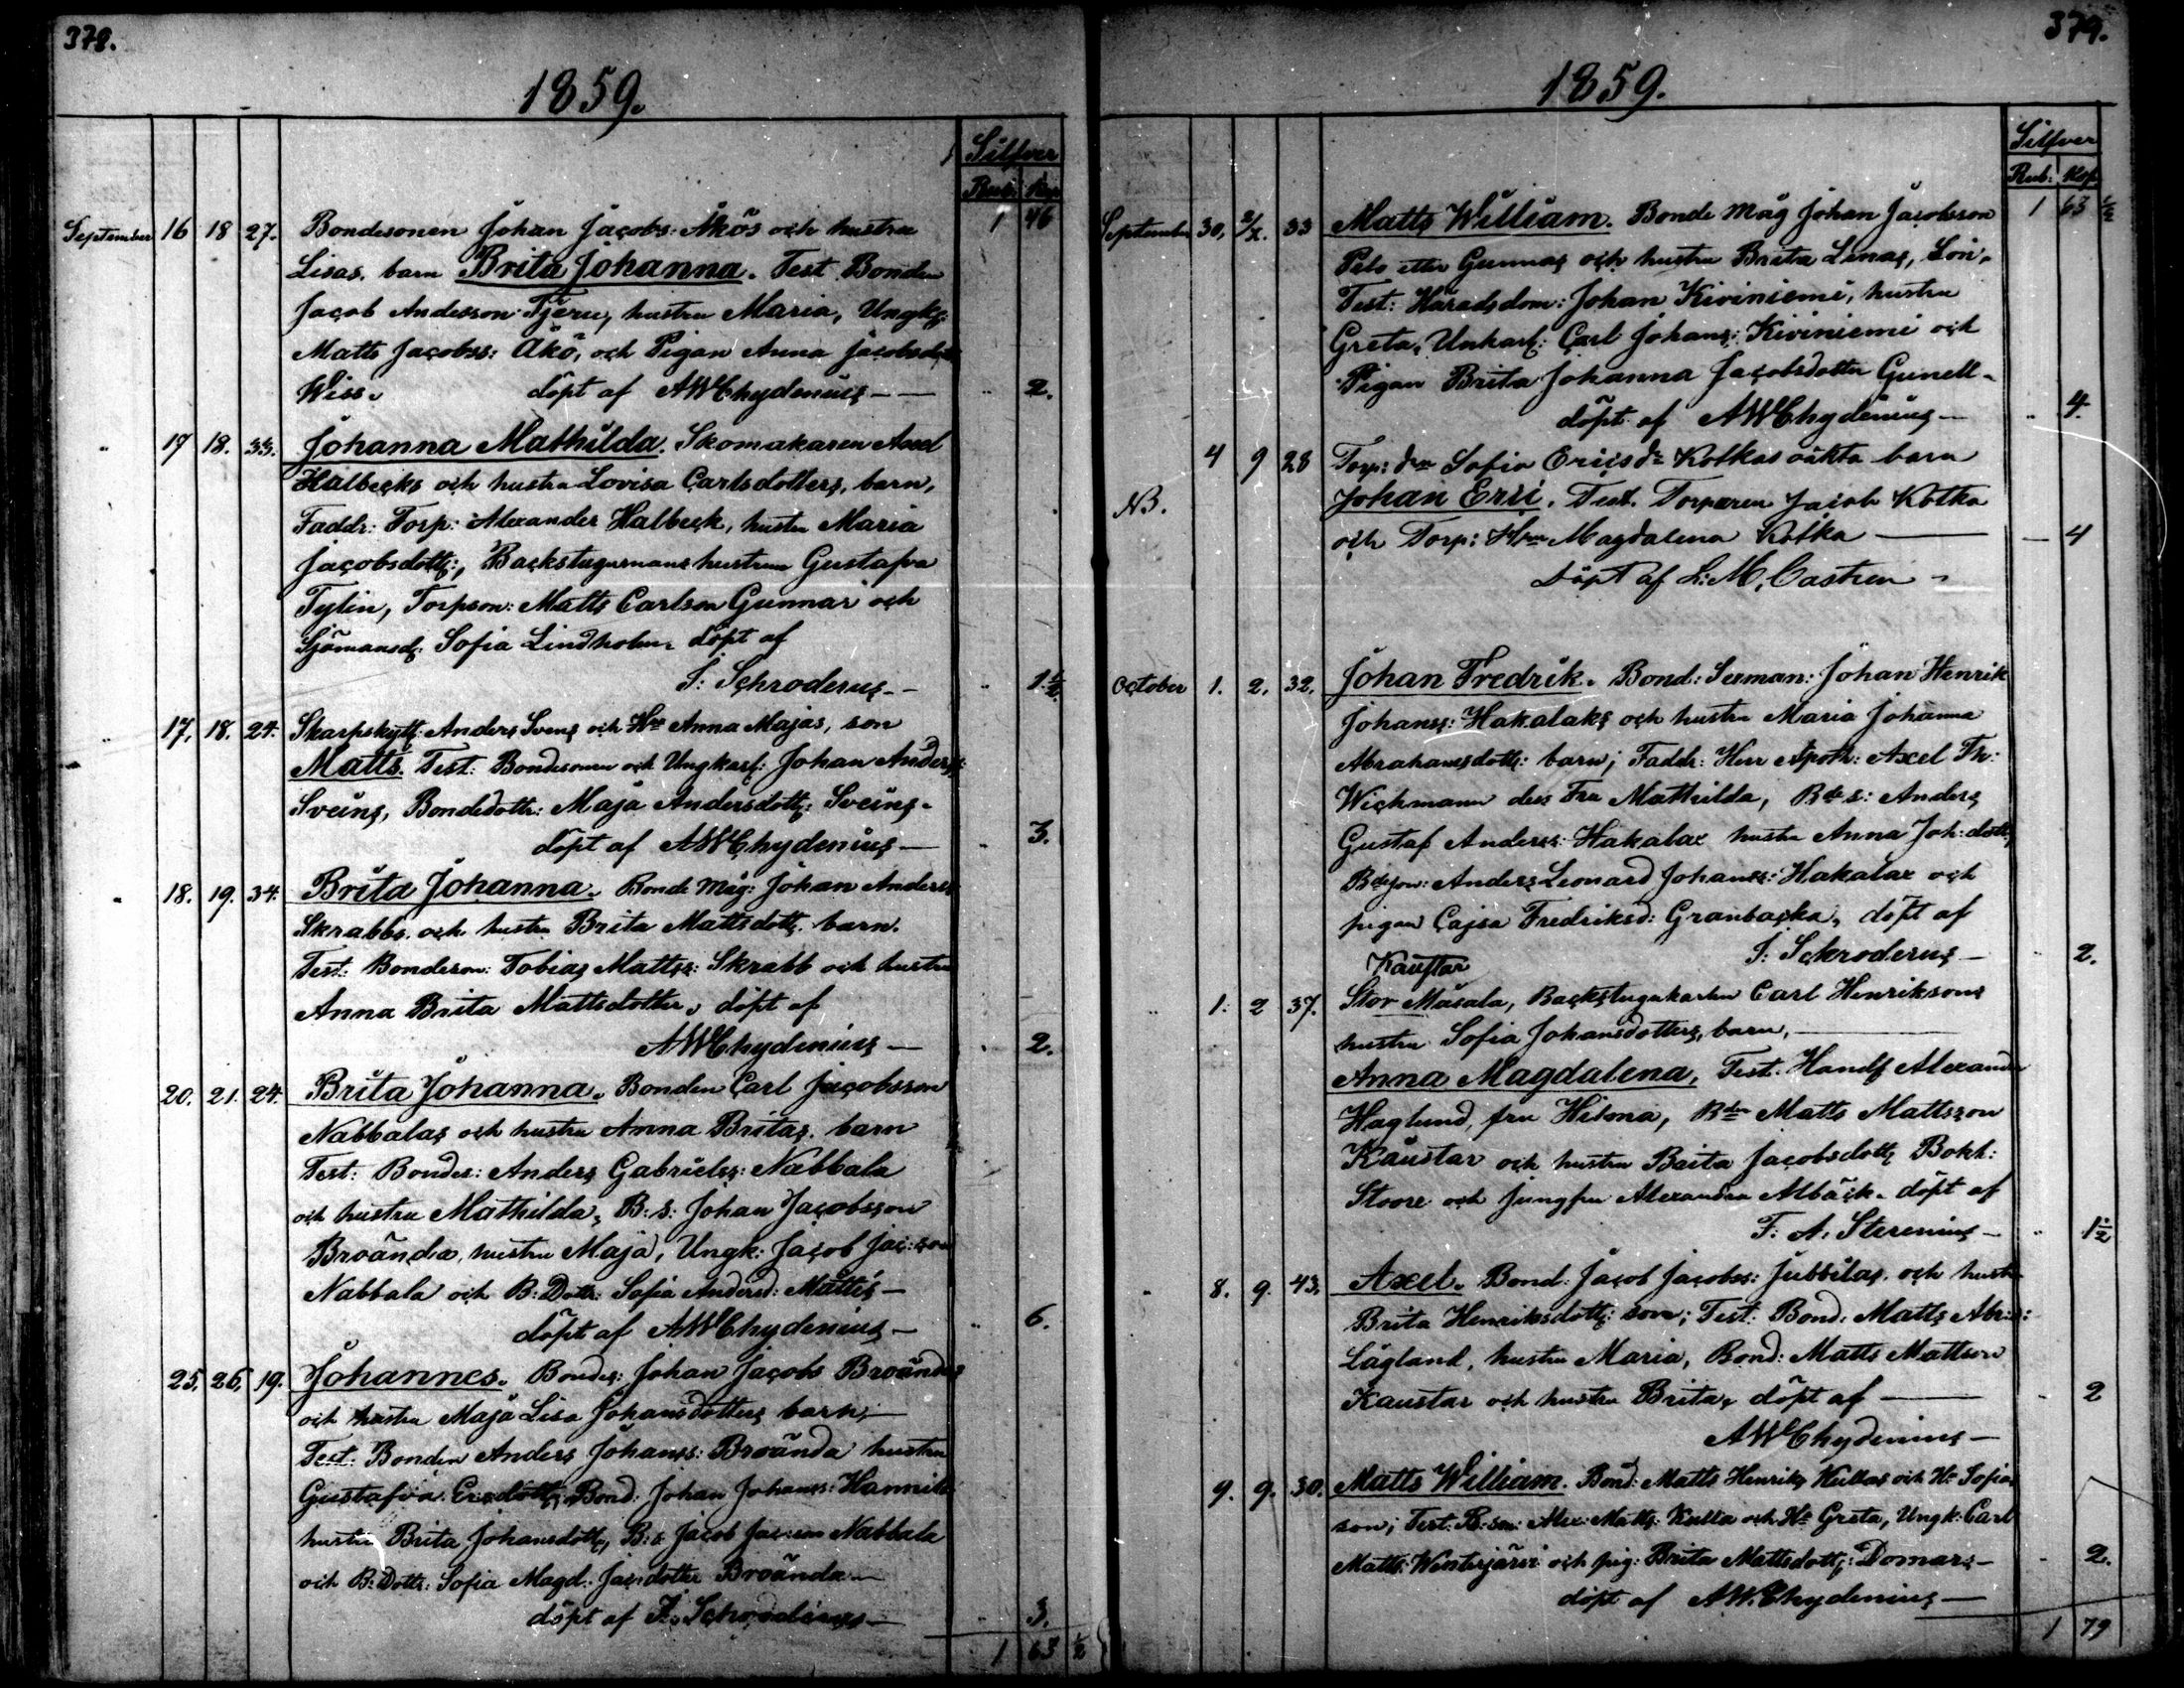 378.
1859.
Silfver
Rub: Kop
September 16 18 27. Bondesonen Johan Jacobs: Åkös och hustru 1 46
Lisas, barn Brita Johanna. Test Bonden
Jacob Andersson Tjeru, hustru Maria, Ungk:
Matts Jacobss: Åkö, och Pigan Anna Jacobsdott
Wiss. döpt af AWChydenius — 2.
" 17 18. 33. Johanna Mathilda. Skomakaren Axel
Halbecks och hustru Lovisa Carlsdotters, barn,
Faddr: Torp: Alexander Halbeck, hustru Maria
Jacobsdott:, Backstugumans hustrun Gustafva
Tylin, Torpson: Matts Carlson Gunnar och
Sjömansd: Sofia Lindholm döpt af
J: Schroderus — " 1 1/2
" 17, 18. 24. Skarpskytt: Anders Sveins och Hru Anna Majas, son
Matts. Test: Bondesonen och Ungkarl: Johan Anderss:
Sveins, Bondedottr: Maja Andersdott: Sveins.
döpt af AWChydenius — " 3.
" 18. 19. 34. Brita Johanna. Bonde Måg: Johan Anderss
Skrabbs och hustru Brita Mattsdott: barn.
Test: Bondeson: Tobias Mattss: Skrabb och hustru
Anna Brita Mattsdotter, döpt af
AWChydenius — " 2.
20. 21. 24. Brita Johanna. Bonden Carl Jacobsson
Nabbalas och hustru Anna Britas, barn
Test: Bondes: Anders Gabrielss: Nabbala
och hustru Mathilda, B: s: Johan Jacobsson
Broända, hustru Maja, Ungk: Jacob Jac:son
Nabbala och B: Dottr: Sofia Andersd: Mattis —
döpt af AWChydenius — " 6.
25, 26, 19. Johannes. Bondes: Johan Jacobs Broändas
och hustru Maja Lisa Johansdotters barn, —
Test: Bonden Anders Johanss: Broända hustru
Gustafva Ersdott:, Bond: Johan Johanss: Hannila
hustru Brita Johansdott:, B: s Jacob Jac:son Nabbala
och B: Dottr: Sofia Magd: Jac:dotter Broända —
döpt af J. Schroderus — " 3.
1 63 1/2
379.
1859.
Silfver
Rub: Kop
September 30, 2/X. 33 Matts William. Bonde måg Johan Jacobsson 1 63 1/2
Pelo eller Gunnas och hustru Brita Lenas, Son,
Test: Häradsdom: Johan Kiviniemi, hustru
Greta, Unkarl: Carl Johans: Kiviniemi och
Pigan Brita Johanna Jacobsdotter Gunell.
döpt af AWChydenius — " 4.
4 9 28 Torp: dr Sofia Ericsdr Kotkas oäkta barn
NB. Johan Eric. Test. Torparen Jacob Kotka
och Torp: Hrun Magdalena Kotka — — 4
döpt af L: M. Castren —
October 1. 2. 32. Johan Fredrik. Bond: Sexman: Johan Henrik
Johanss: Hakalaks och hustru Maria Johanna
Abrahamsdott: barn; Faddr: Herr Apoth: Axel Th:
Wichmann dess Fru Mathilda, Bde s: Anders
Gustaf Anderss: Hakalax hustru Anna Joh: dott:
Bdeson: Anders Leonard Johanss: Hakalax och
pigan Cajsa Fredriksd: Granbacka, döpt af
J: Schroderus — " 2.
Kaustar
" 1. 2 37. Stor Måsala, Backstugukarlen Carl Henriksons
hustru Sofia Johansdotters, barn, —
Anna Magdalena, Test. Handl Alexander
Haglund, fru Hilma, Bdn Matts Mattsson
Kaustar och hustru Brita Jacobsdott: Bokh:
Stoore och Jungfru Alexandra Albäck. döpt af
F. A. Sterenius — " 1 1/2
" 8. 9. 43. Axel. Bond: Jacob Jacobss: Jubbilas, och hustru
Brita Henriksdott: son; Test: Bond: Matts Abr:s:
Lågland, hustru Maria, Bond: Matts Mattson
Kaustar och hustru Brita, döpt af — " 2
AWChydenius —
9. 9. 30. Matts William. Bond: Matts Henriks Kullas och Hu Sofias
son; Test: B: son: Alex: Matts: Kulla och Hu Greta, Ungk: Carl
Matts: Wintejärvi och pig: Brita Mattsdott: Domars — " 2.
döpt af AWChydenius —
1 79